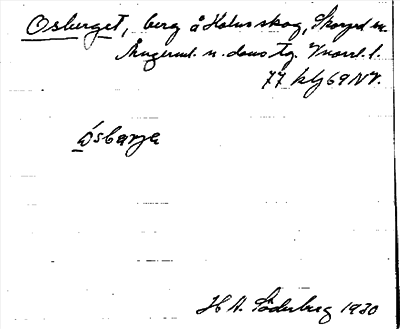 Osberget, berg å Holms skog, Skorped sn.
Ångerml. n. doms tg. Vnorrl. l.
77 kbf 69 NV.
ósbarja
H A. Söderberg 1930